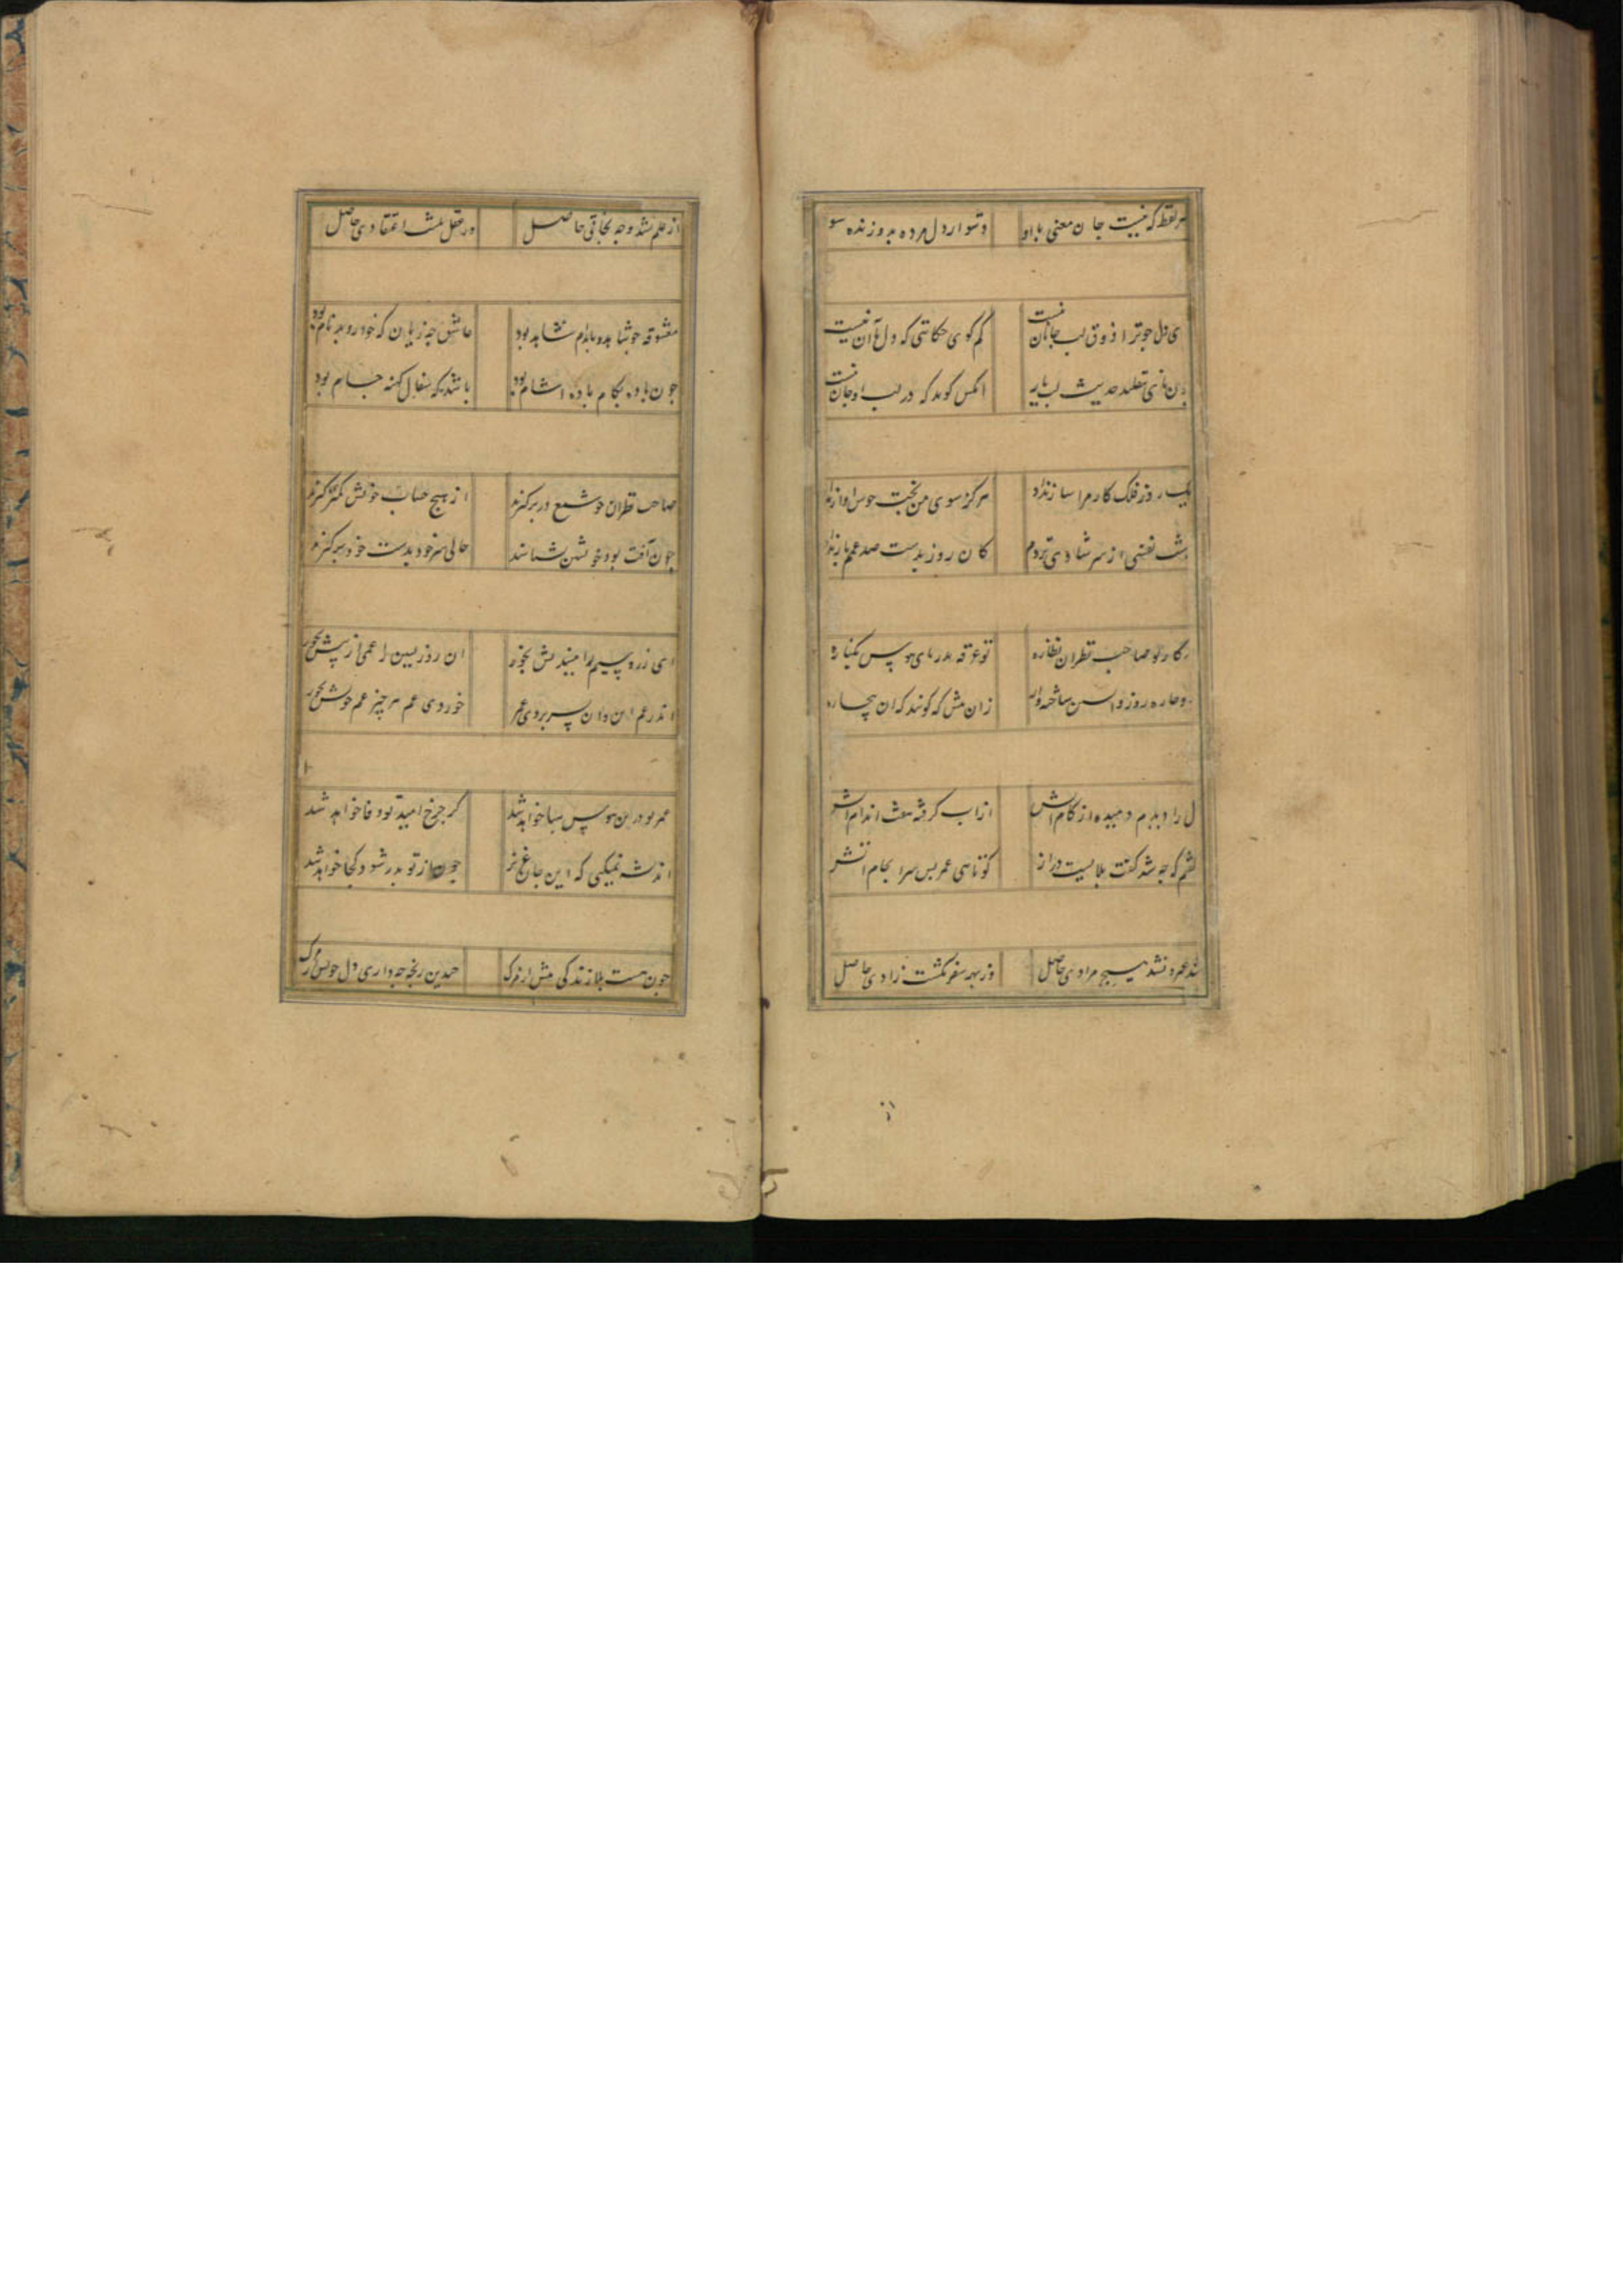 هر لفظ که نیست جان معنی با او
دشوار دل مرده بدو زنده سو
ای دل جو ترا ذوق لب جانان نیست
کم کوی حکایتی که دل با آن نیست
تقلید حدیث لب یار
انکس کوید که در لب او جان نیست
یک روز فلک کار مرا ساز نداد
هرکز سوی من بخت خوش اواز نداد
یک شب نفسی از سر شادی نزدم
کان روز بدست صد غمم باز نداد
تو صاحب نظران نظاره
تو غرقه بدریای هوس یکباره
روز
زان پیش که کویند که ان بیچاره
دل را دیدم دمیده از کام اتش
از اب کرفته هفت اندام اتش
کفتم که چه شد کفت بلاییست دراز
کوتاهی عمر بین سرانجام اتش
شد عمر و نشد هیچ مرادی حاصل
وز بهر سفر نکشت زادی حاصل
از علم نشد وجه نجاتی حاصل
ور عقل نشد اعتقادی حاصل
معشوقه جو شاهد و دلارام بود
عاشق جه زیان که خود رو و بدنام بود
جون باده بکام باده اشام بود
باشد که سفال کهنه جام بود
صاحب نظران جو شمع در بر کیرند
از هیچ حساب خویش کمتر کیرند
جون آفت بود خویشتن شناسند
حالی سر خود بدست خود برکیرند
ای زر و سیم را میندیش بخور
ان روز ببین غمی از پیش بخور
اندر غم این وان بسر بردی عمر
خوردی غم هر چیز غم خویش بخور
عمر تو درین هوس هبا خواهد شد
کر جرخ امید تو وفا خواهد شد
اندیشه نمیکنی که این جان عزیز
جون از تو بدر شود کجا خواهد شد
جون هست بلا زندکی بیش از مرک
جندین رنجه جه داری دل خویش از مرک